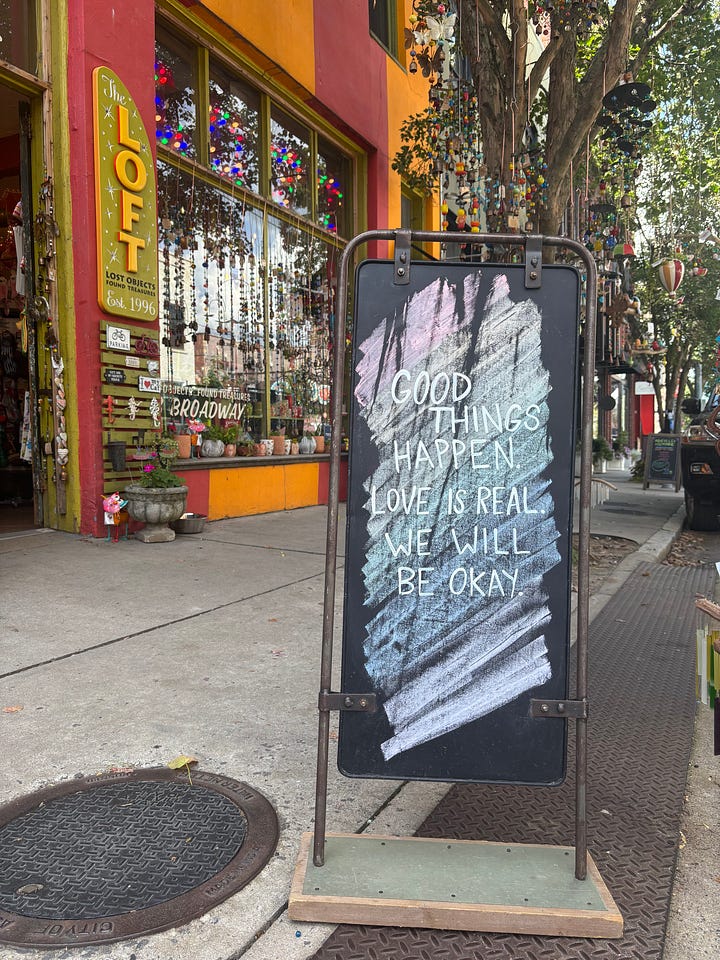 The
LOFT
LOST OBJECTS
FOUND TREASURES
Est. 1996
PARKING
OBJECTS, FOUND TREASURES
BROADWAY
GOOD
THINGS
HAPPEN.
LOVE IS REAL.
WE WILL
BE OKAY.
CITY OF